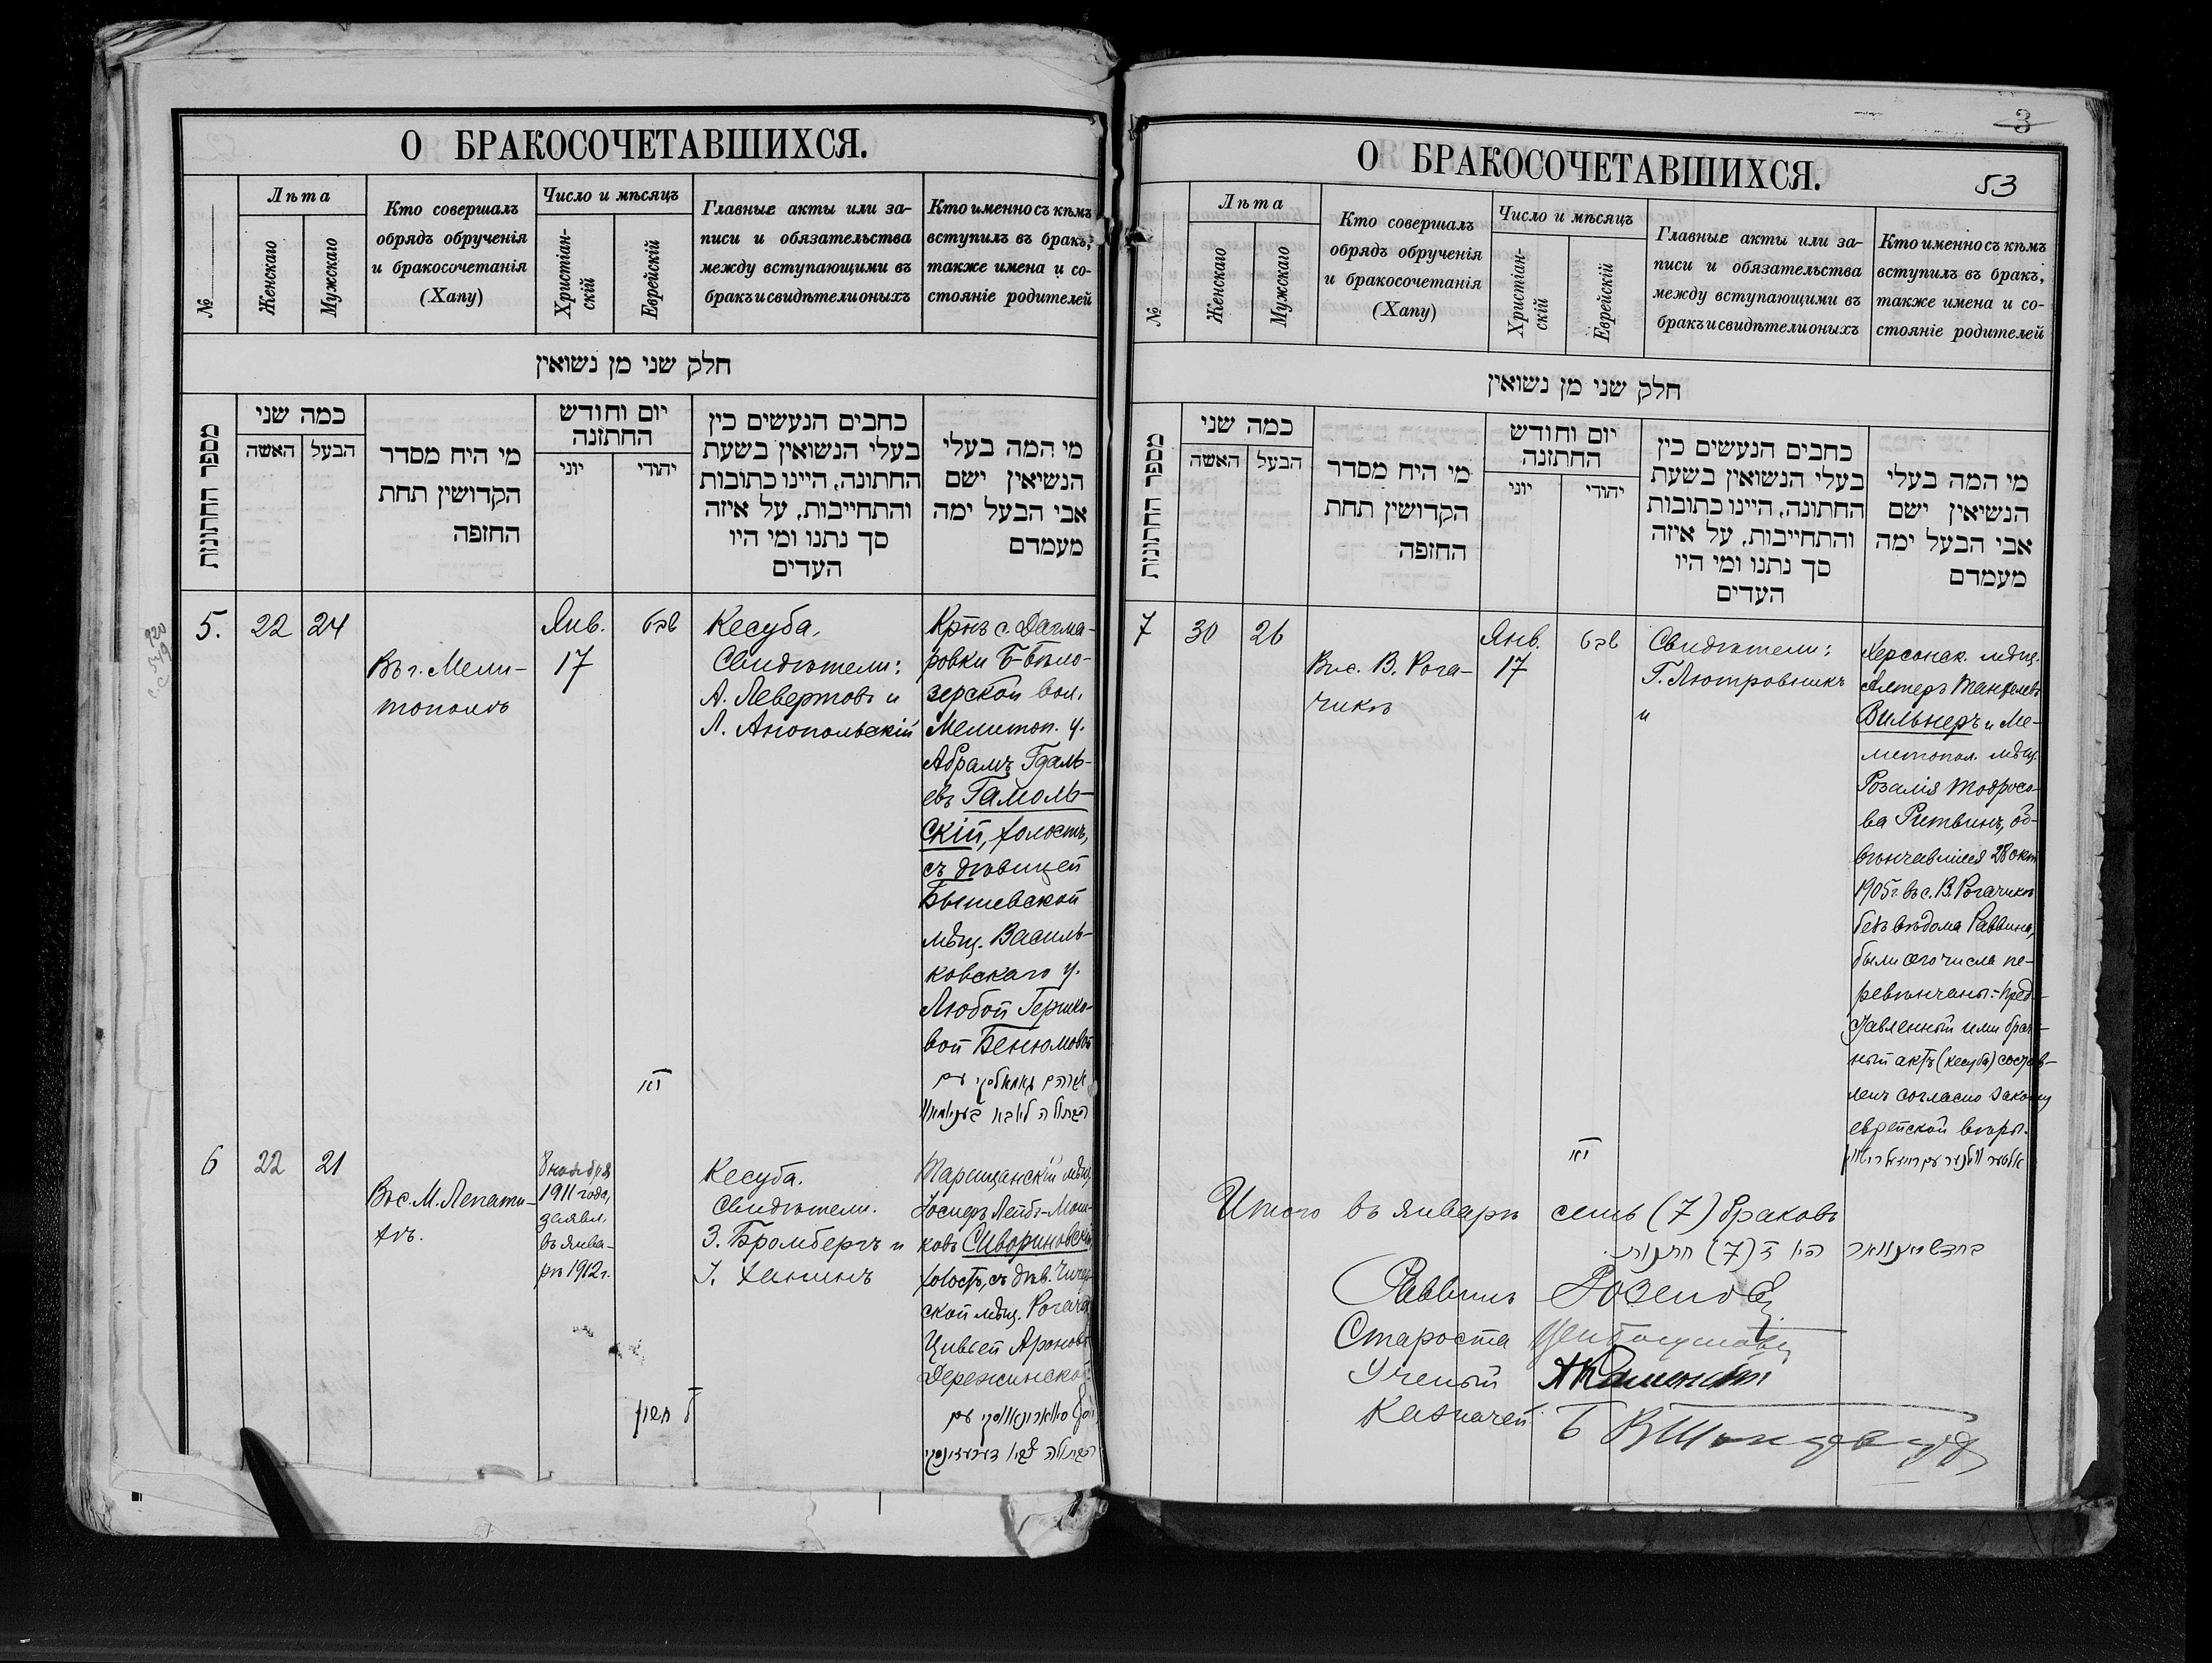 О БРАКОСОЧЕТАВШИХСЯ.
№
Лѣта
Женскаго
Мужскаго
Кто совершалъ
обрядъ обрученія
и бракосочетанія
(Хапу)
Число и мѣсяцъ
Христіан-
скій
Еврейскій
Главные акты или за-
писи и обязательства
между вступающими въ
бракъ и свидѣтели оныхъ
Кто именно съ кѣмъ
вступилъ въ бракъ,
также имена и со-
стояніе родителей
חלק שני מן נשואין
מספר החתונות
כמה שני
האשה
הבעל
מי היח מסדר
הקדושין תחת
החופה
יום וחודש
החתונה
יוני
יהודי
כחבים הנעשים כין
בעלי הנשואין בשעת
החתונה, היינו כתובות
והתחייבות, על איזה
סך נתנו ומי היו
העדים
מי המה בעלי
הנשיאין ישם
אבי הבעל ימה
מעמדם
5.
22
24
Въ г. Мели-
тополѣ
Янв.
17
שבט
יוא
Кесуба.
Свидѣтели:
А. Левертовъ и
Л. Анопольскій
Крнъ с. Дагма-
ровки Б-Бѣло-
зерской вол.
Мелитоп. у.
Абрамъ Гдаль-
евъ Гамоль-
скій, холостъ,
съ дѣвицей
Бышевской
мѣщ. Василь-
ковскаго у.
Любой Гершко-
вой Бенюмовой
6
22
21
Въ с. М. Лепати-
хѣ.
8 ноября
1911 года,
заявл.
въ янва-
рѣ 1912 г.
חשון
Кесуба.
Свидѣтели.
З. Бромбергъ и
І. Ханинъ
Таращанскій мѣщ.
Іосифъ Лейбъ-Мош-
ковъ Сивориновскій
холостъ, съ дѣв. Чичер-
ской мѣщ. Рогач.
Цивьей Ароновой
Дережинской
О БРАКОСОЧЕТАВШИХСЯ.
3
53
№
Лѣта
Женскаго
Мужскаго
Кто совершалъ
обрядъ обрученія
и бракосочетанія
(Хапу)
Число и мѣсяцъ
Христіан-
скій
Еврейскій
Главные акты или за-
писи и обязательства
между вступающими въ
бракъ и свидѣтели оныхъ
Кто именно съ кѣмъ
вступилъ въ бракъ,
также имена и со-
стояніе родителей
חלק שני מן נשואין
מספר החתונות
כמה שני
האשה
הבעל
מי היח מסדר
הקדושין תחת
החופה
יום וחודש
החתונה
יוני
יהודי
כחבים הנעשים כין
בעלי הנשואין בשעת
החתונה, היינו כתובות
והתחייבות, על איזה
סך נתנו ומי היו
העדים
מי המה בעלי
הנשיאין ישם
אבי הבעל ימה
מעמדם
7
30
26
Въ с. В. Рога-
чикѣ
Янв.
17
שבט
Свидѣтели:
Г. Лютровникъ
и
Херсонск. мѣщ.
Алтеръ Манделевъ
Вильнеръ и Ме-
литопол. мѣщ.
Розалія Тодросо-
ва Ритвинъ, об-
вѣнчавшіеся 28 окт
1905 г. въ с. В. Рогачикѣ
безъ вѣдома Раввина,
были сего числа пе-
ревѣнчаны:- Пред-
ставленный ими брач-
ный актъ (кесуба) состав-
ленъ согласно закону
еврейской вѣры.
Итого въ январѣ семь (7) браковъ
Раввинъ
Староста
Ученый А Каменскій
Казначей